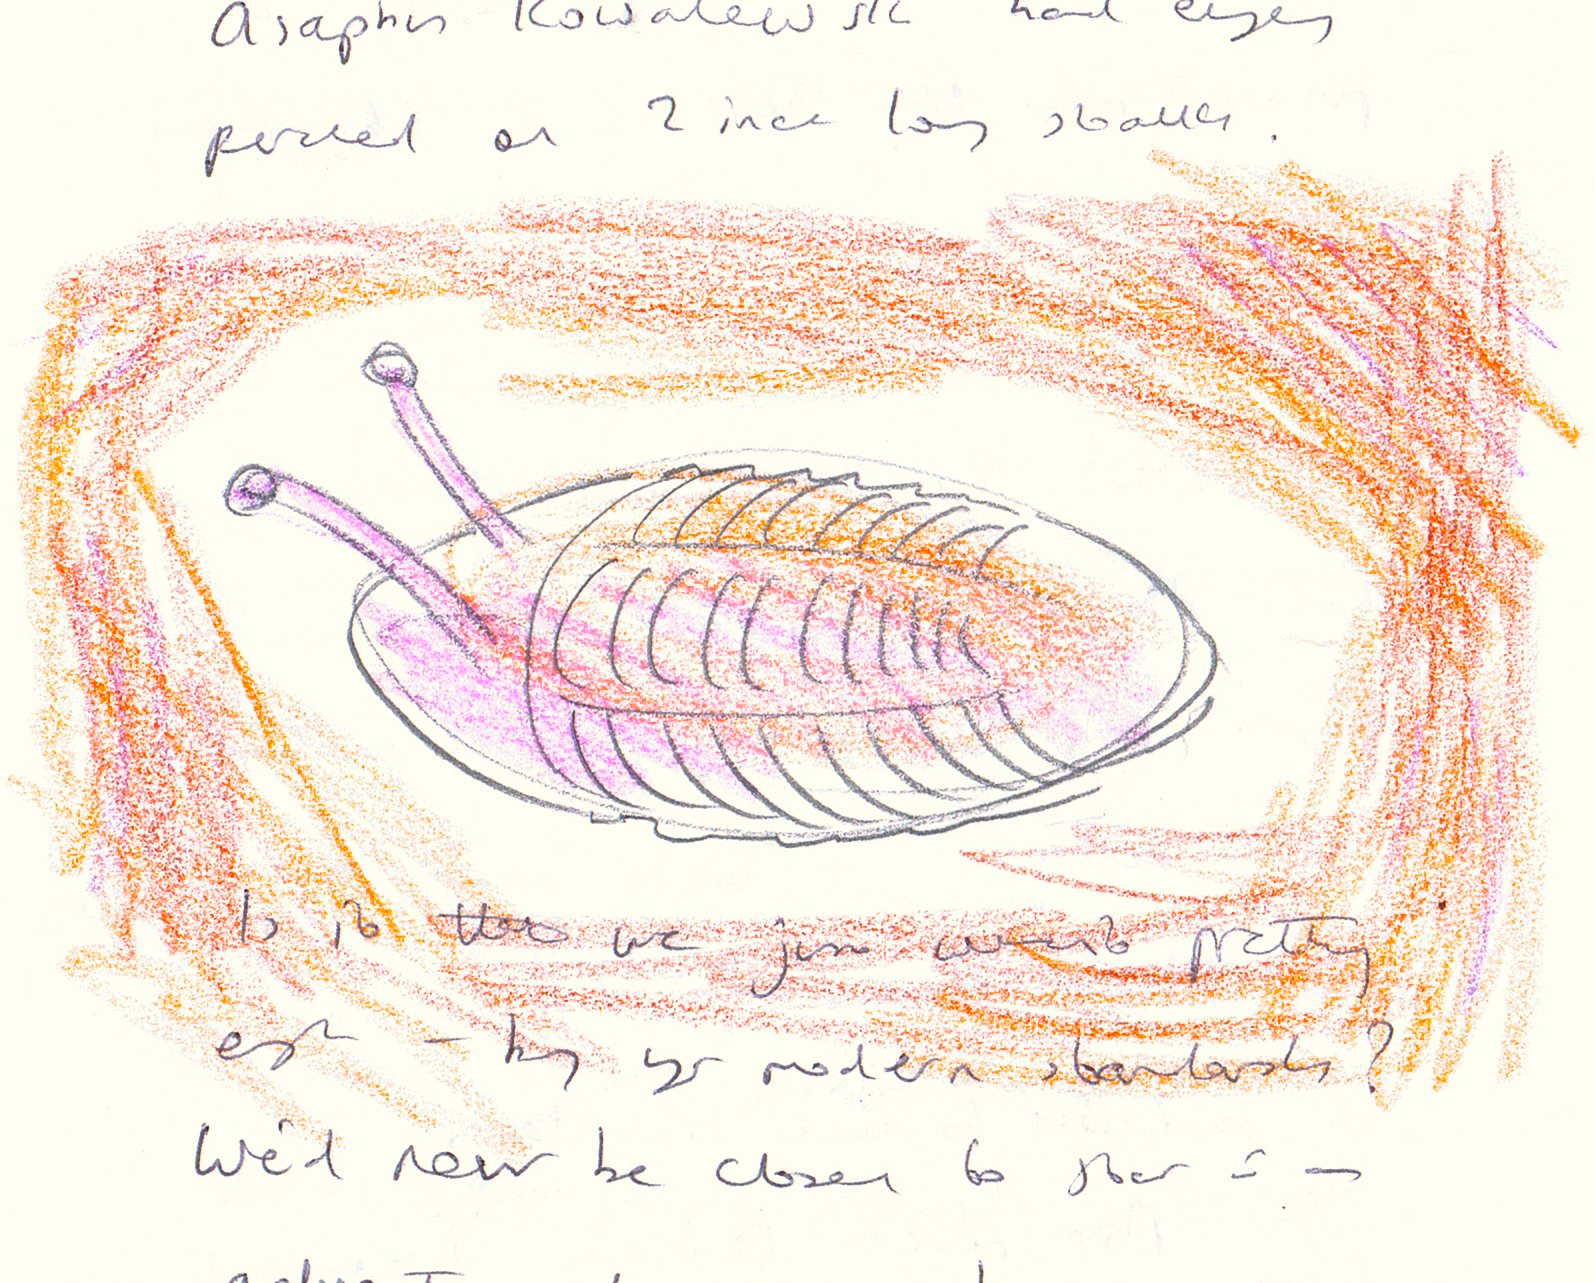 Asaphus Kowalewski had eyes
perched on 2 inch long stalks.
Is it we just weren't pretty
enough - by yr modern standards?
We'd never be chosen to star in